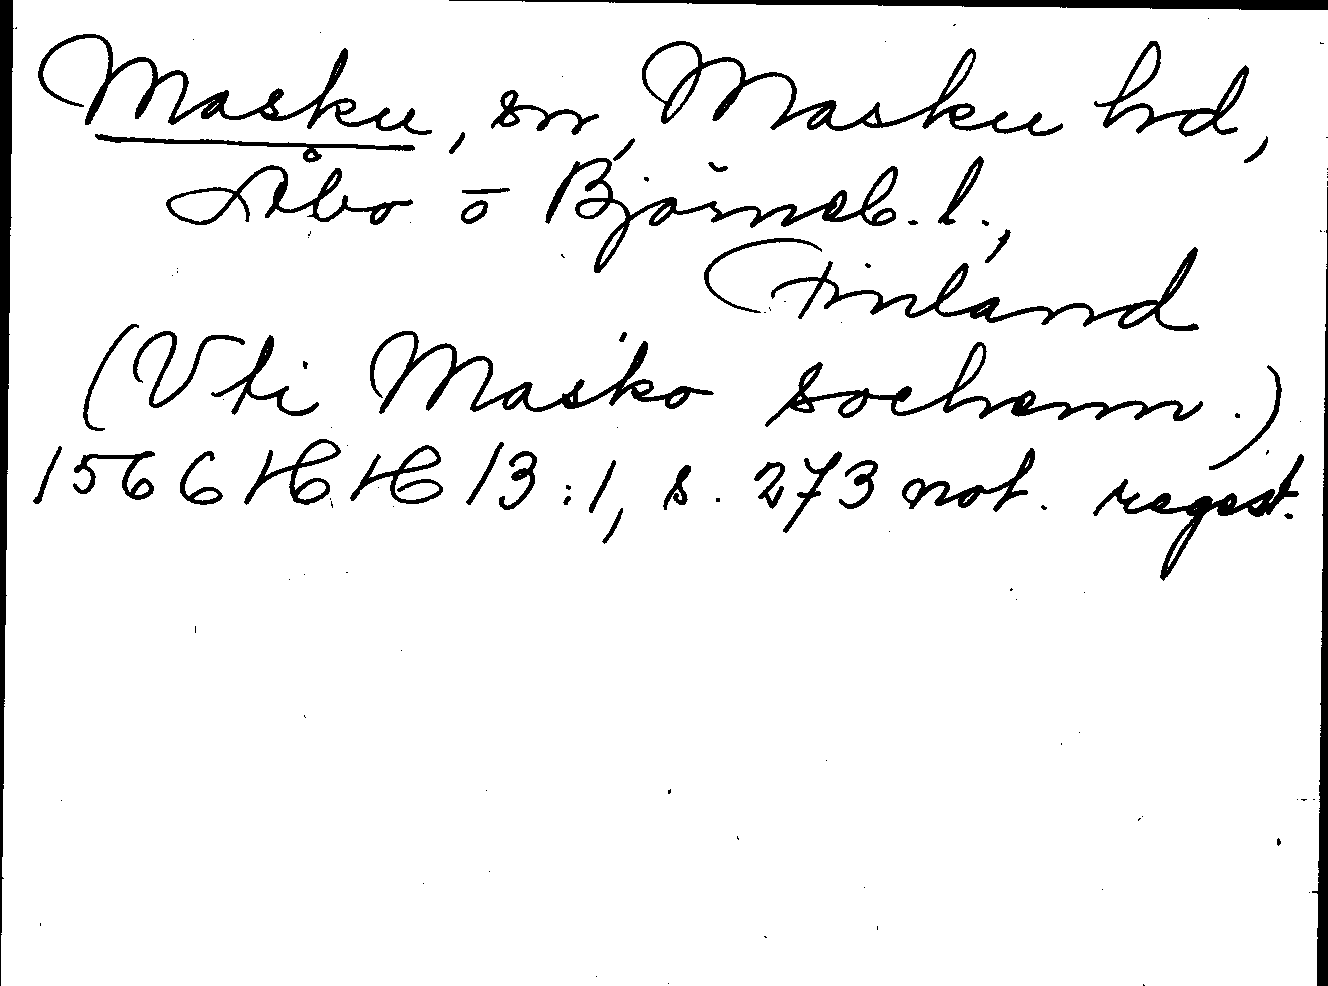 Masku, sn, Masku hd,
Åbo o Björneb. l.,
Finland
(Vti Masko sochenn.)
1566 HH 13:1, s. 273 not. regest.